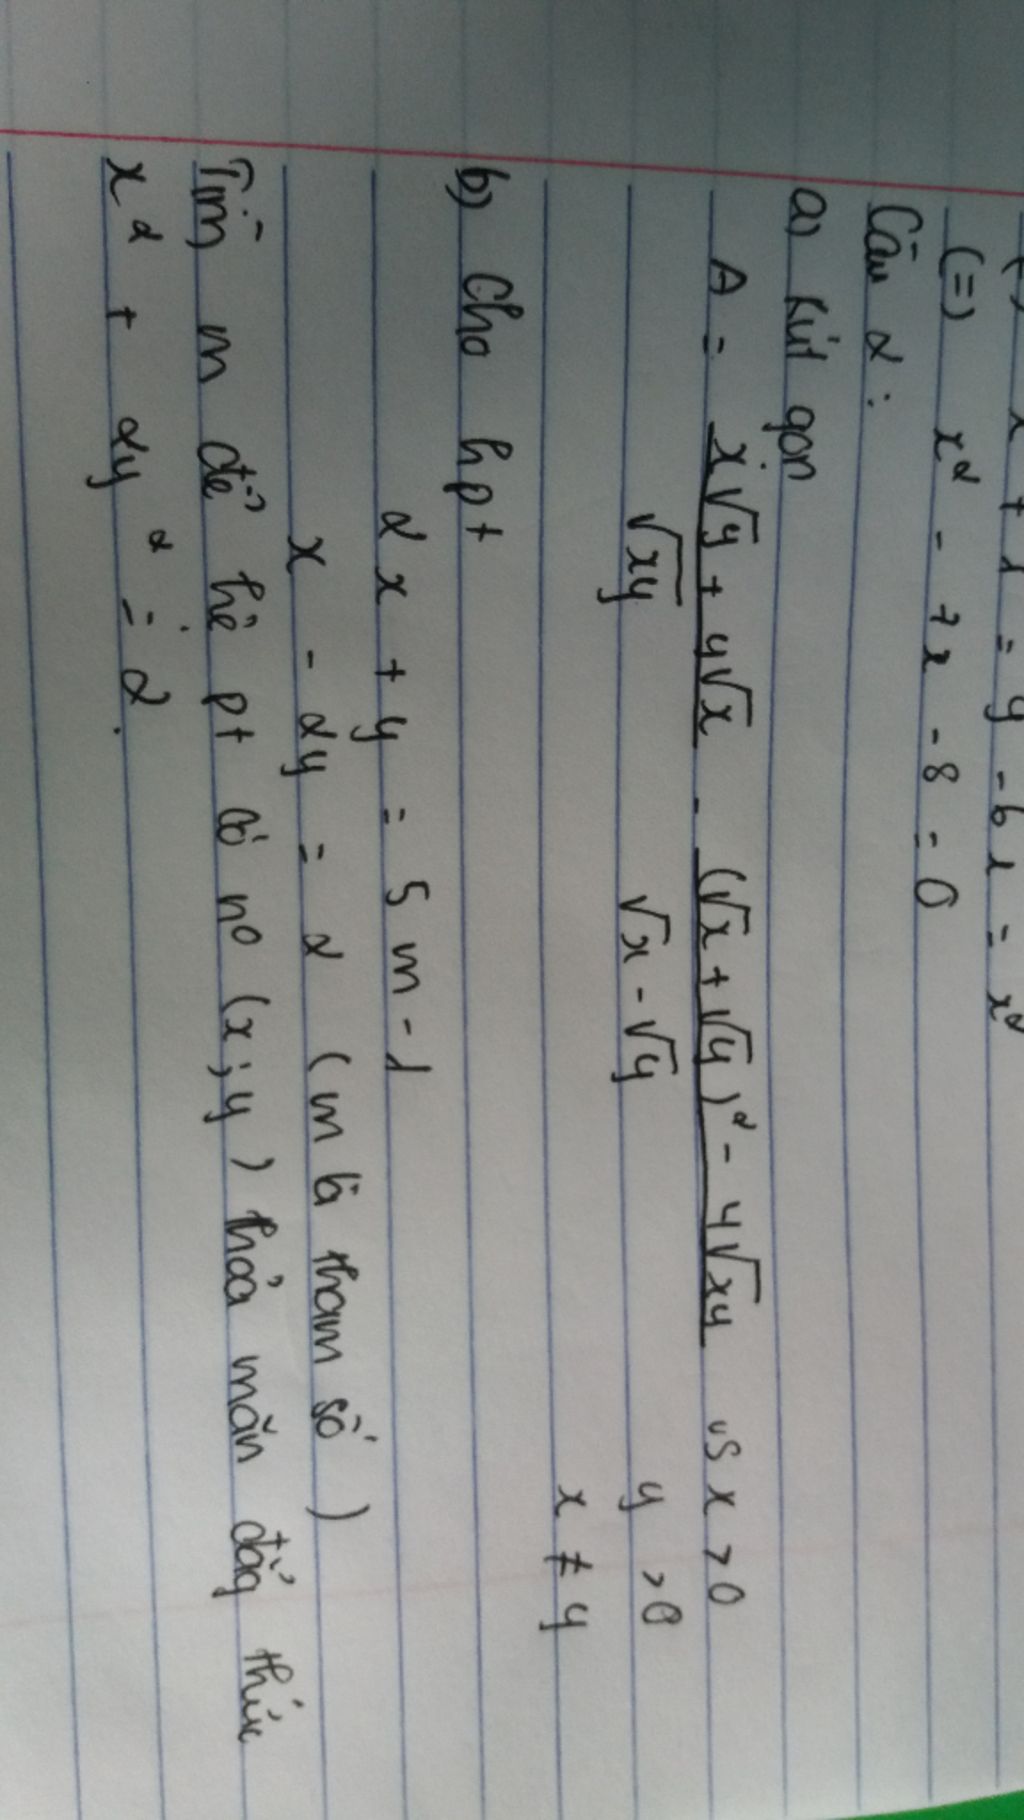 x + 1 = y - 61 = x²
(=) x² - 7x - 8 = 0
Câu 2:
a) Rút gọn
A = x√y + y√x / √xy - (√x + √y)² - 4√xy / √x - √y vs x > 0
y > 0
x ≠ y
b) Cho hpt
2x + y = 5m - 1
x - 2y = 2 (m là tham số)
Tìm m để hệ pt có no (x; y) thỏa mãn đẳg thức
x² + 2y² = 2.